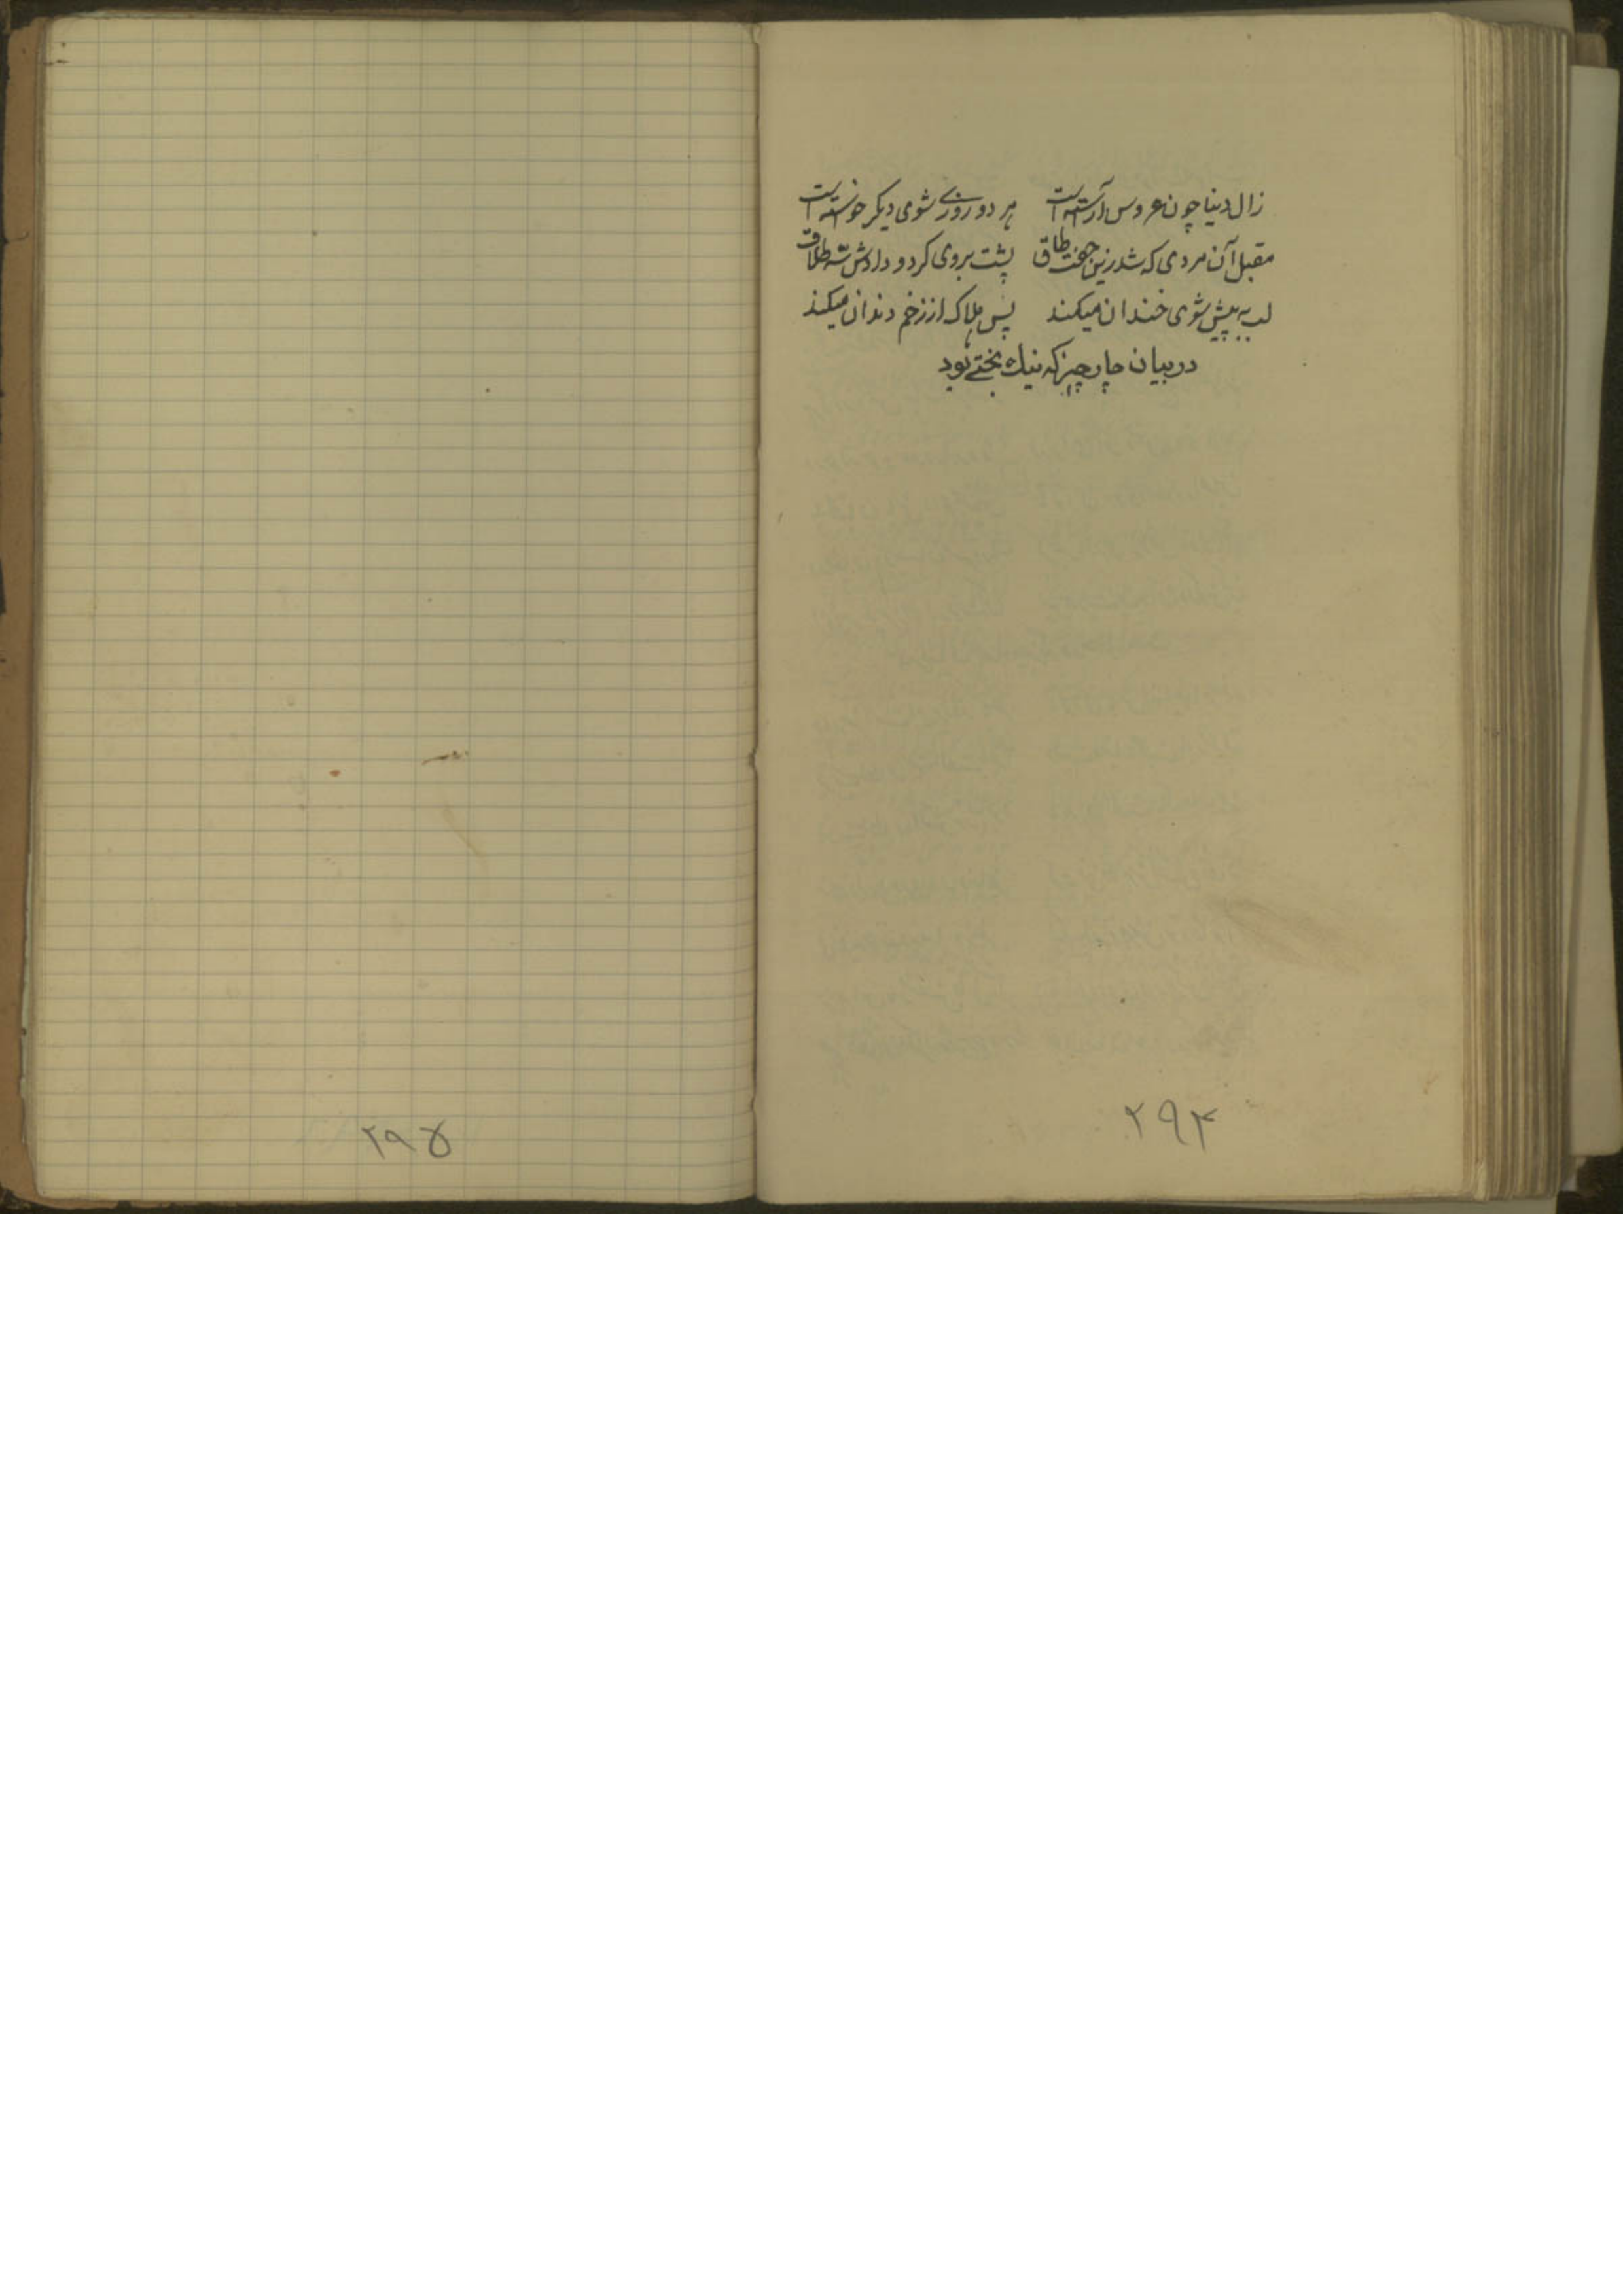 زال دنیا چون عروس آراسته است هر دو روزی شوی دیگر خواسته است
مقبل آن مردی که شد زین جفت طاق پشت بروی کرد و دادش سه طلاق
لب به پیش شوی خندان میکند پس هلاک از زخم دندان میکند
در بیان چار چیز که نیک بختی بود
۲۹۴
۲۹۵